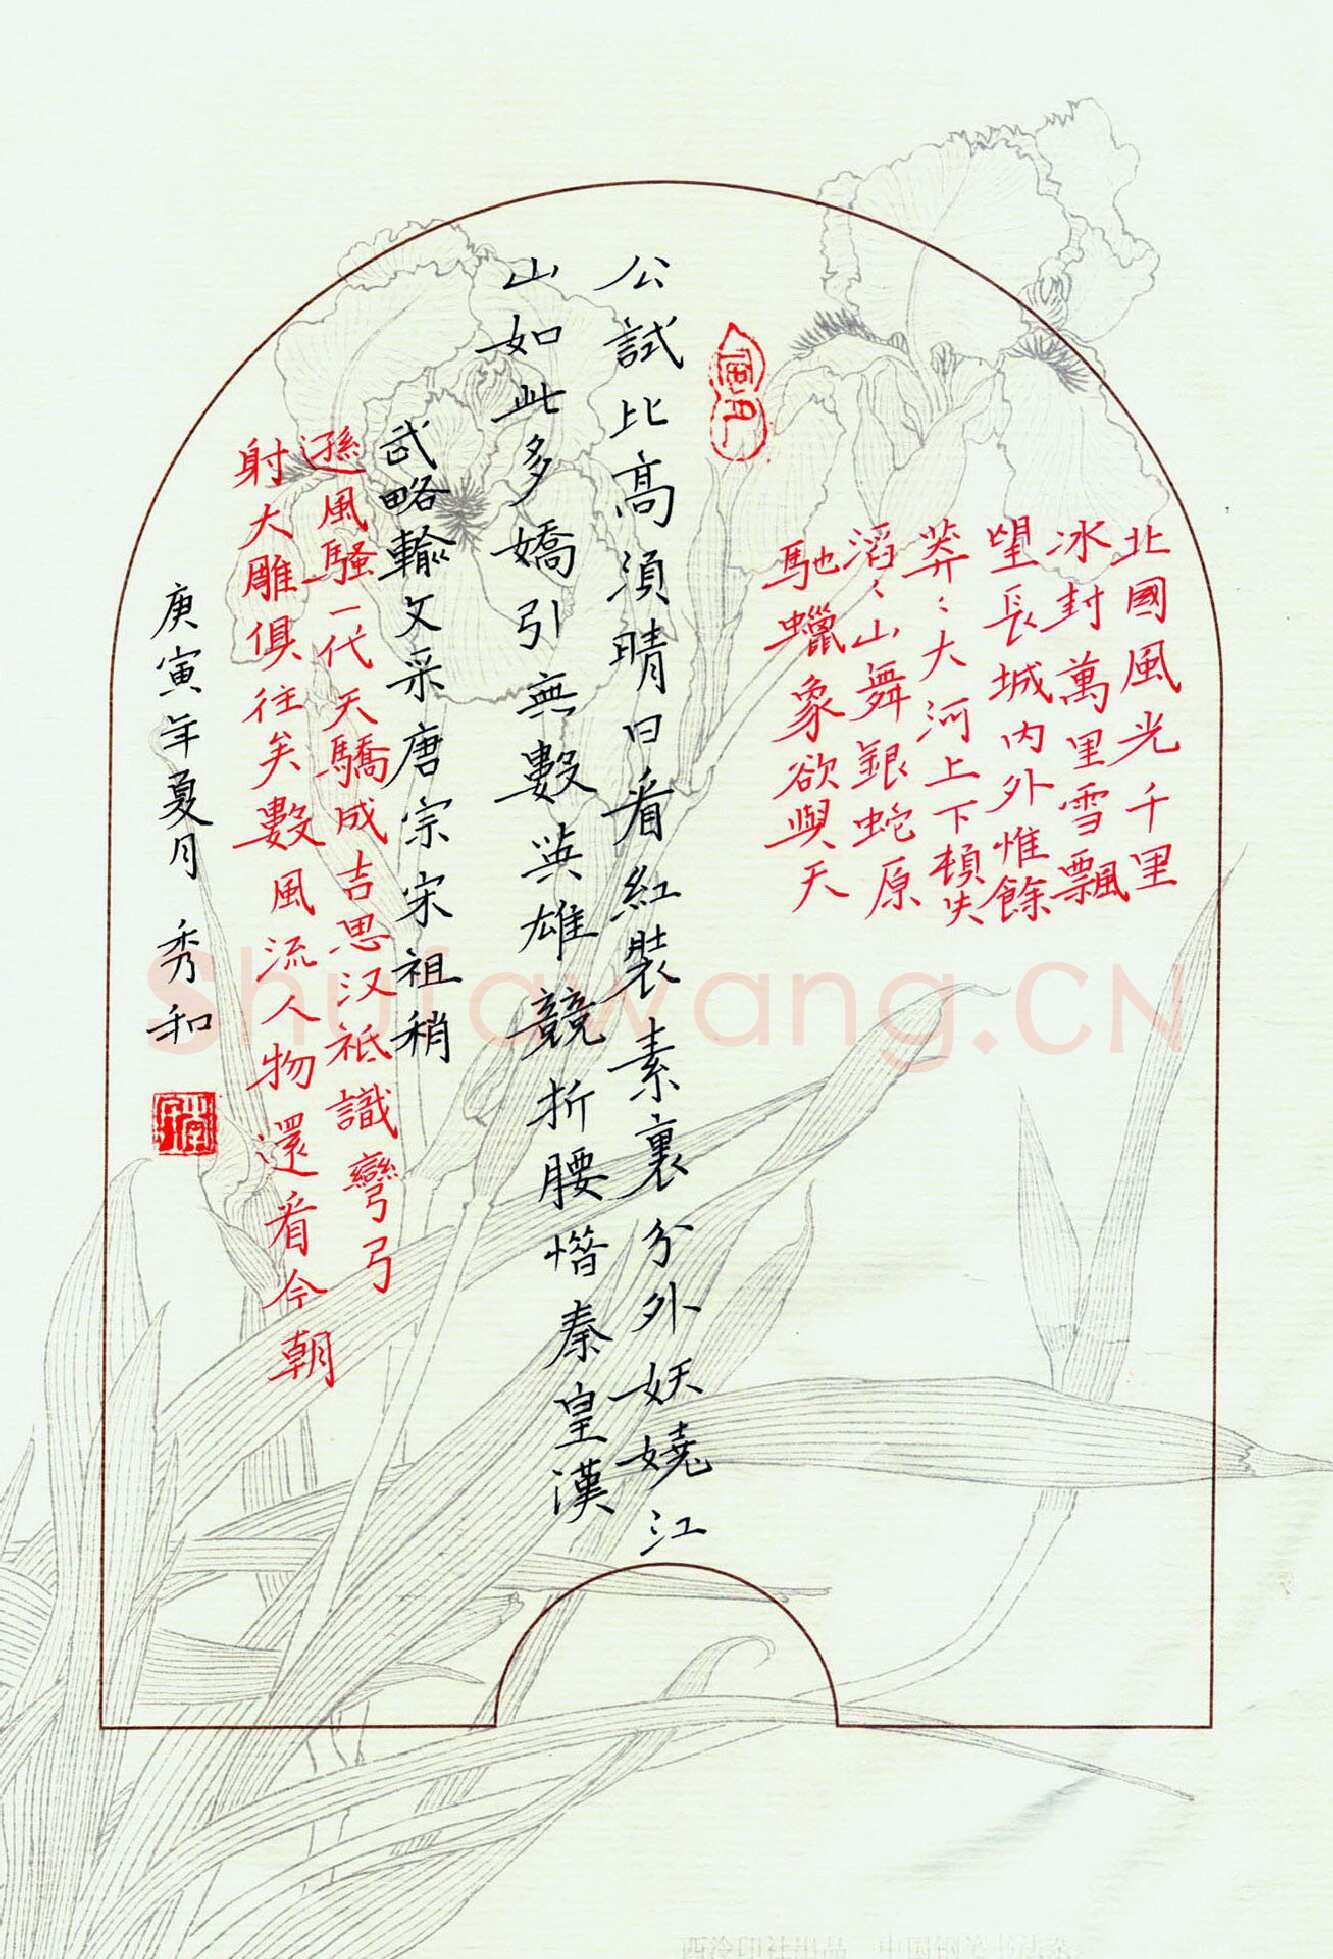 北國風光千里
冰封萬里雪飄
望長城内外惟餘
莽〻大河上下頓失
滔〻山舞銀蛇原
馳蠟象欲與天
公試比高須晴日看紅裝素裹分外妖嬈江
山如此多嬌引無數英雄競折腰惜秦皇漢
武略輸文采唐宗宋祖稍
遜風騷一代天驕成吉思汉祗識彎弓
射大雕俱往矣數風流人物還看今朝
庚寅年夏月 秀和
Shufawang.CN